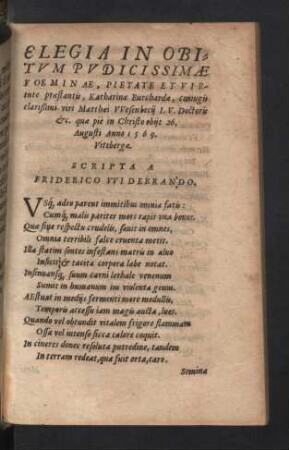 ELEGIA IN OBI-
TVM PVDICISSIMÆ
FOEMINAE, PIETATE ET VIR-
tute præstantis, Katharinæ Burckardæ, coniugis
clarissimi viri Matthæi VVesenbecij I. V. Doctoris
&c. quæ pie in Christo obijt 26.
Augusti Anno 1569.
Vitebergæ.
SCRIPTA A
FRIDERICO VVIDEBRANDO.
VSq; adeo parent immitibus omnia fatis:
Cumq; malis pariter mors rapit vna bonos.
Quæ sine respectu crudelis, sæuit in omnes,
Omnia terribili falce cruenta metit.
Illa statim fontes infestans matris in aluo
Inficit & tacita corpora labe notat.
Insinuansq; suum carni lethale venenum
Sumit in humanum ius violenta genus.
AEstuat in medijs feruenti more medullis,
Temporis accessu iam magis aucta, lues.
Quando vel obtundit vitalem frigore flammam
Ossa vel intenso sicca calore coquit.
In cineres donec resoluta putredine, tandem
In terram redeat, qua fuit orta, caro.
Semina